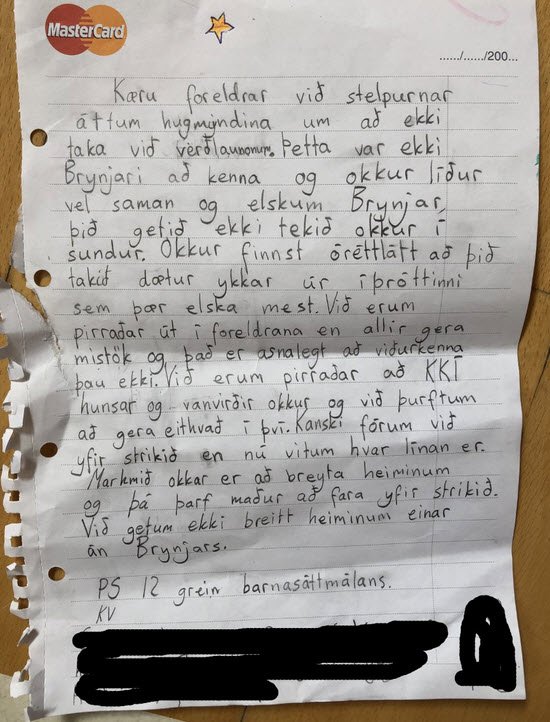 MasterCard
....../....../200...
Kæru foreldrar við stelpurnar
áttum hugmyndina um að ekki
taka við verðlaunonum. Þetta var ekki
Brynjari að kenna og okkur líður
vel saman og elskum Brynjar,
þið getið ekki tekið okkur í
sundur. Okkur finnst óréttlátt að þið
takið dætur ykkar úr íþróttinni
sem þær elska mest. Við erum
pirraðar út í foreldrana en allir gera
mistök og það er asnalegt að viðurkenna
þau ekki. Við erum pirraðar að KKÍ
hunsar og vanvirðir okkur og við þurftum
að gera eithvað í því. Kanski fórum við
yfir strikið en nú vitum hvar línan er.
Markmið okkar er að breyta heiminum
og þá þarf maður að fara yfir strikið.
Við getum ekki breitt heiminum einar
án Brynjars.
PS 12 grein barnasáttmálans.
KV